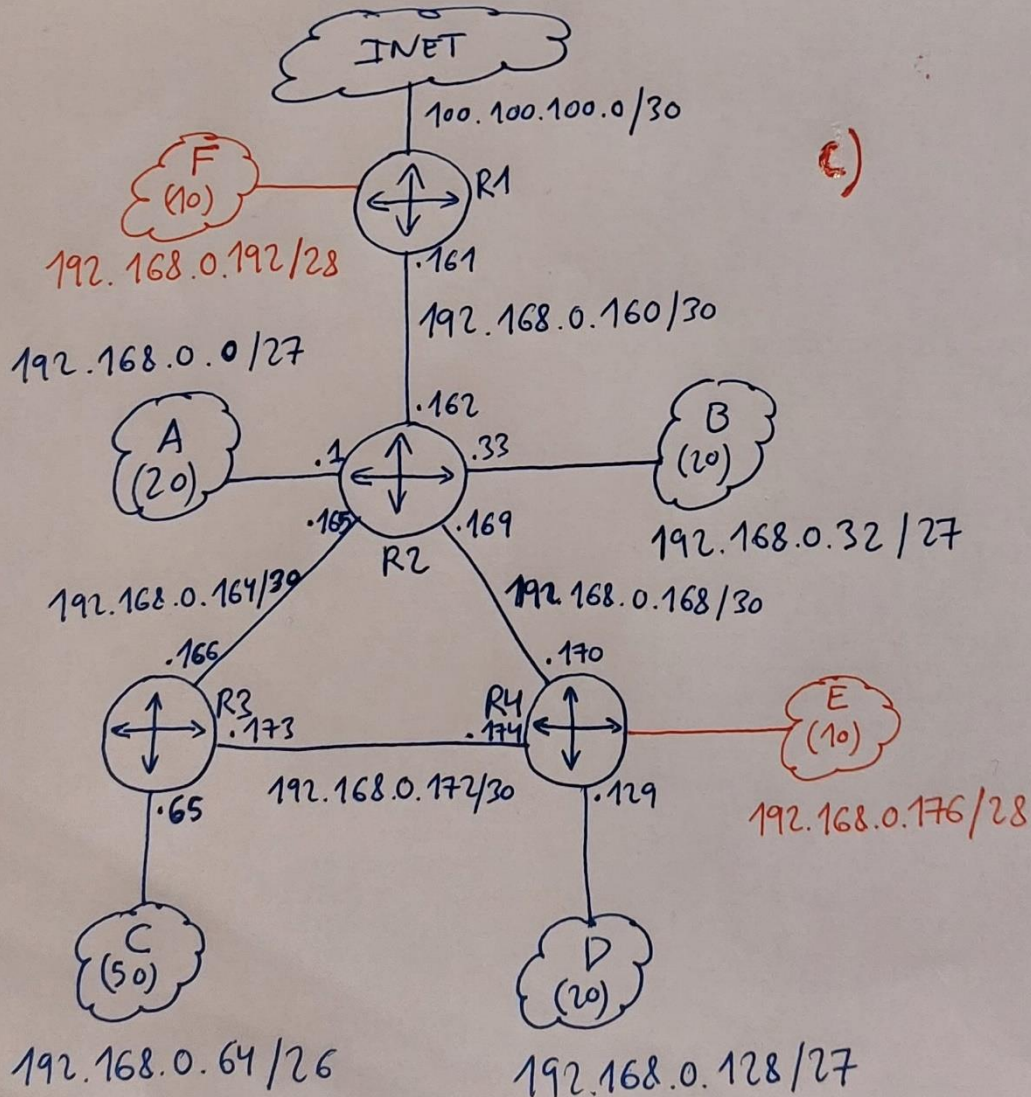 INET
100.100.100.0/30
c)
F
(10)
R1
192.168.0.192/28
.161
192.168.0.160/30
192.168.0.0/27
.162
A
(20)
.1
.33
B
(20)
.165
.169
R2
192.168.0.32/27
192.168.0.164/30
192.168.0.168/30
.166
.170
R3
.173
R4
.174
E
(10)
192.168.0.172/30
.65
.129
192.168.0.176/28
C
(50)
D
(20)
192.168.0.64/26
192.168.0.128/27